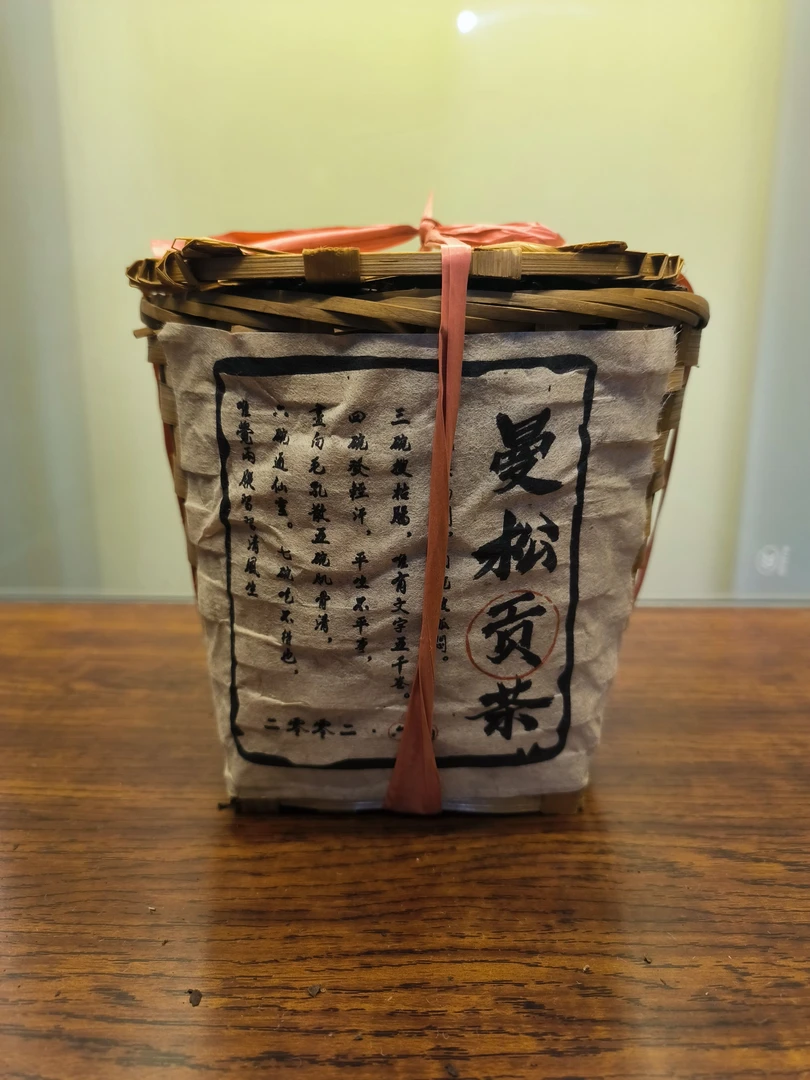 曼松贡茶
問。
三碗搜枯腸，唯有文字五千卷。
四碗發輕汗，平生不平事，
盡向毛孔散五碗肌骨清，
六碗通仙靈。七碗吃不得也，
唯覺兩腋習習清風生
二零零二.